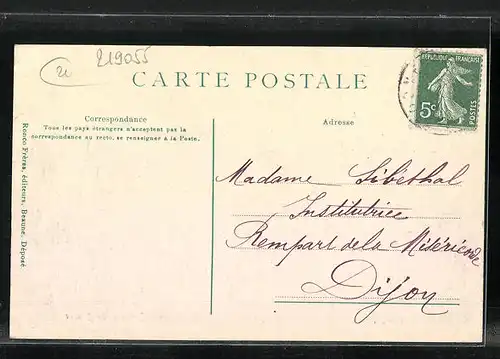 21
219055
CARTE POSTALE
RÉPUBLIQUE FRANÇAISE
5c
POSTES
Correspondance
Tous les pays étrangers n'acceptent pas la
correspondance au recto, se renseigner à la Poste.
Adresse
Ronco Frères, éditeurs, Beaune. Déposé
Madame Sibethal
Institutrice
Rempart de la Miséricorde
Dijon